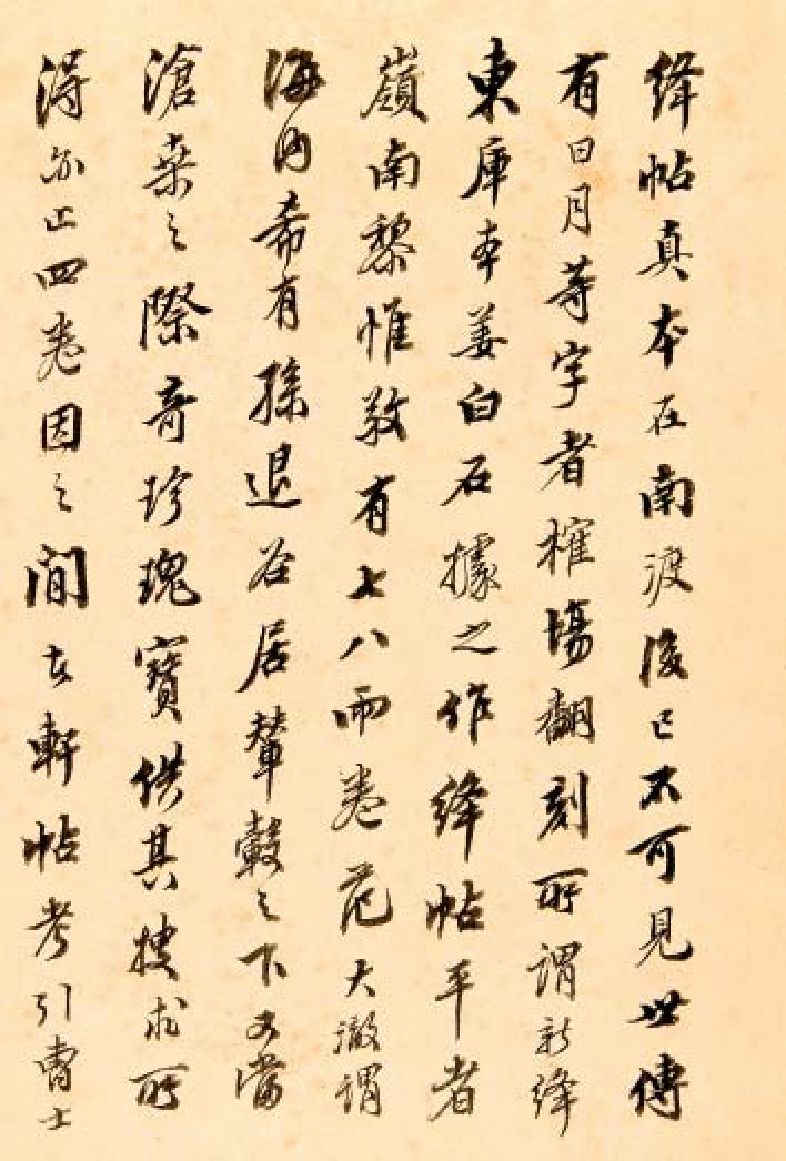 絳帖真本在南渡後已不可見世傳
有日月等字者榷場翻刻所謂新絳
東庫本姜白石據之作絳帖平者
嶺南黎惟敬有七八兩卷范大澈謂
海內希有孫退谷居輦轂之下又當
滄桑之際奇珍瑰寶供其搜求所
得亦止四卷因之閒者軒帖考引曹士